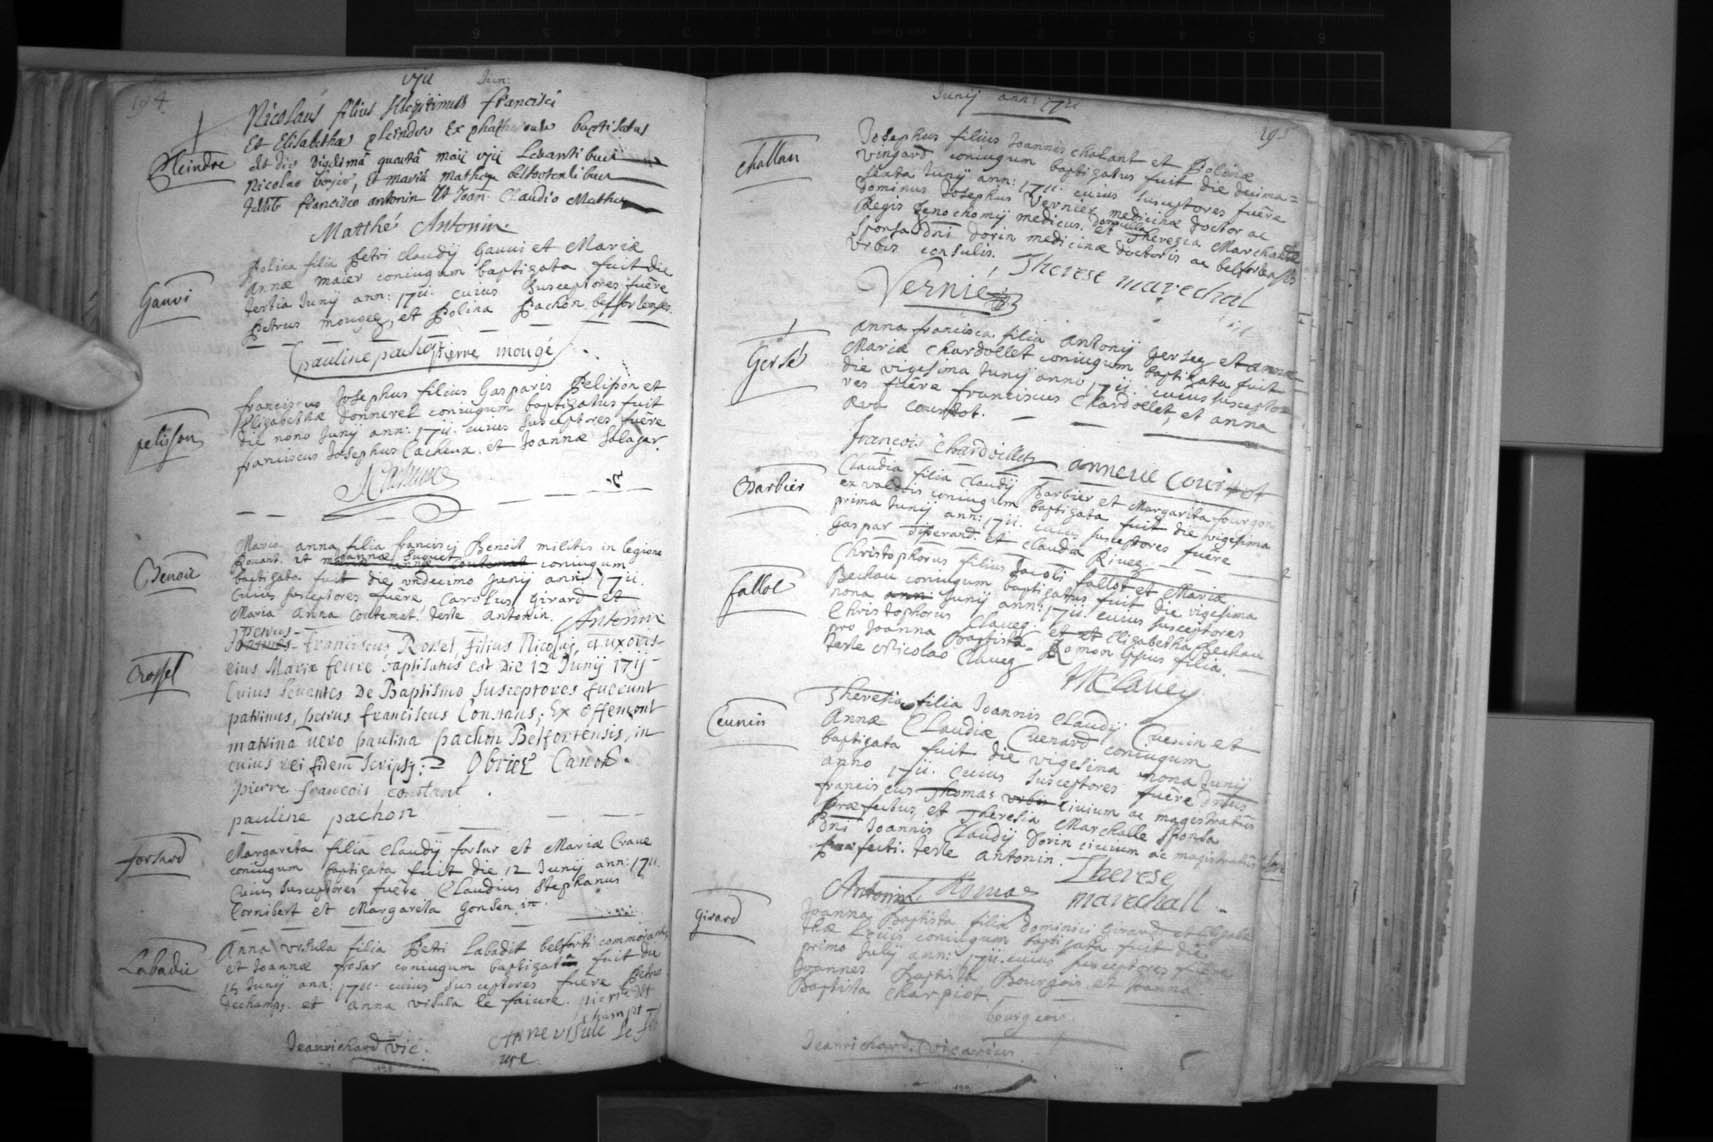 194
vyii Jun:
Nicolaus filius legitimus francisci
Et Elisabetha pleindre Ex baptisatus
Est die Vigesimâ quartâ maii vyii Levantibus
Nicolao et mariâ
francisco antonin Et Joan Claudio Mathey
Pleindre
Matthé Antonin
Polina filia Petri Claudij Gauvi et Mariæ
Annæ maier coniugum baptizata fuit die
tertia Junij ann: 1711. cuius Susceptores fuêre
Petrus mougez, et Polina Pachon belfortenses.
Gauvi
pauline pachon pierre mougé
franciscus Josephus filius Gasparis Pelisson et
Elizabethæ Donnerel coniugum baptizatus fuit
die nono Junij ann: 1711. cuius Susceptores fuêre
franciscus Josephus Cacheux. et Joannæ Salazar.
pelisson
Maria anna filia francisci Benoit militis in legione
Rouant. et Joannæ coniugum
baptizata fuit die undecimo Junij ann: 1711.
Cuius susceptores fuêre Carolus girard et
Maria anna Coutemat. teste antonin. Antonin
Benoit
petrus
Franciscus Rossel filius Nicolaj, & uxoris
eius Mariæ feure baptisatus est Die 12 Junij 1711
Cuius levantes De Baptismo Susceptores fuerunt
patrinus, petrus franciscus Constans, Ex offemont
matrina vero paulina pachon Belfortensis, in
cuius rei fidem scripsj:
Rossel
pierre francois constant
pauline pachon
Margarita filia Claudij forsar et Mariæ Crave
coniugum baptizata fuit die 12 Junij ann: 1711.
Cuius susceptores fuêre Claudius Stephanus
Cornibert et Margarita Gonsen
forsard
Anna ursula filia Petri Labadit belforti commorantis
et Joannæ frosar coniugum baptizata fuit die
15 Junij ann: 1711. cuius susceptores fuêre Petrus
dechamps. et anna ursula le faiure. pierre de
champt
Labadie
Anne ursule le fe
ure
Jeanrichard vic:
Junij ann: 1711
195
Josephus filius Joannis chalant et Polinæ
vingard coniugum baptizatus fuit die decima=
sexta Junij ann: 1711. cuius susceptores fuêre
dominus Josephus Vernier medicinæ doctor ac
Regis medicus. et domicilla Theresia Marchalle
sponsa dni dorin medicinæ doctoris ac belfortensis
Urbis consulis.
challan
Vernier Therese marechal
anna francisca filia antonij gersez et annæ
Mariæ chardollet coniugum baptizata fuit
die vigesima Junij anno 1711. cuius suscepto=
res fuêre franciscus chardollet, et anna
eva courtot.
Gersé
françois Chardoillet anneve Courtot
Claudia filia Claudij Barbier et Margarita fourgon
ex valdois coniugum baptizata fuit die vigesima
prima Junij ann: 1711. cuius susceptores fuêre
Gaspar et claudia Riuez.
Barbier
Christophorus filius Jacobi fallot et Mariæ
Bechau coniugum baptizatus fuit die vigesima
nona Junij ann: 1711. cuius susceptores
Christophorus Clavez. et Elizabetha Bechau
pro Joanna Baptista Romon ipsius filia.
teste Nicolao Clavez
fallot
N Clavey
Theresia filia Joannis Claudij Cuenin et
Annæ Claudiæ Cuenard coniugum
baptizata fuit die vigesima nona Junij
anno 1711. cuius susceptores fuêre dnus
franciscus Thomas civium ac magistratus
præfectus, et Theresia Marchalle sponsa
dni Joannis Claudij Dorin civium ac magistratus
præfecti. teste antonin.
Cuenin
Antonin Thomas Therese
marechall
Joanna Baptista filia dominici Girard et Elizabe
thæ Louis coniugum baptizata fuit die
primo Julij ann: 1711. cuius susceptores fuêre
Joannes Baptista Bourgois. et Joanna
Baptista charpiot.
Girard
bourgeoy
Jeanrichard. Vicarius.